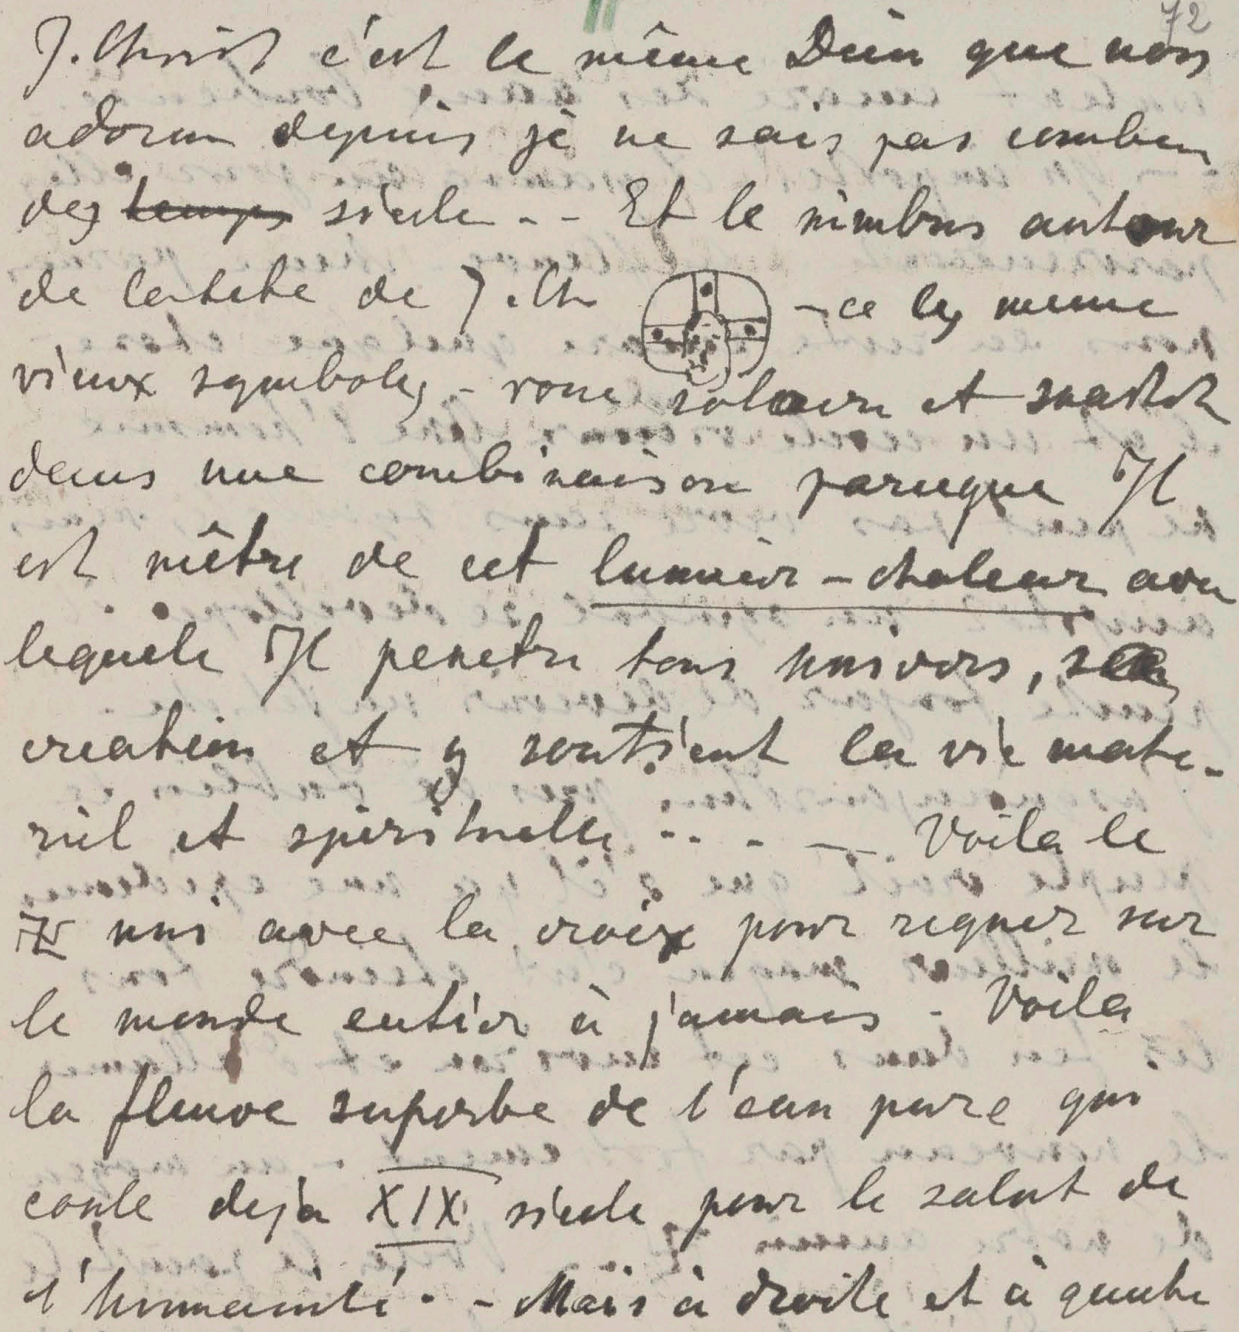 72
J. Christ c'est le même Dieu que nous
adoron depuis je ne sais pas combien
des temps siecle - - Et le nimbus autour
de la tete de J. Ch - ce les meme
vieux symboles - roue solaire et svastik
dans une combinaison parceque Il
est mêtre de cet lumier - chaleur avec
lequele Il penetre tous univers, sa
creation et y soutient la vie mate-
riel et spirituelle - - - — Voila le
卐 uni avec la croix pour regner sur
le monde entier à jamais - Voila
la fleuve superbe de l'eau pure qui
coule deja XIX siecle pour le salut de
l'humanité. - Mais à droite et à gauche